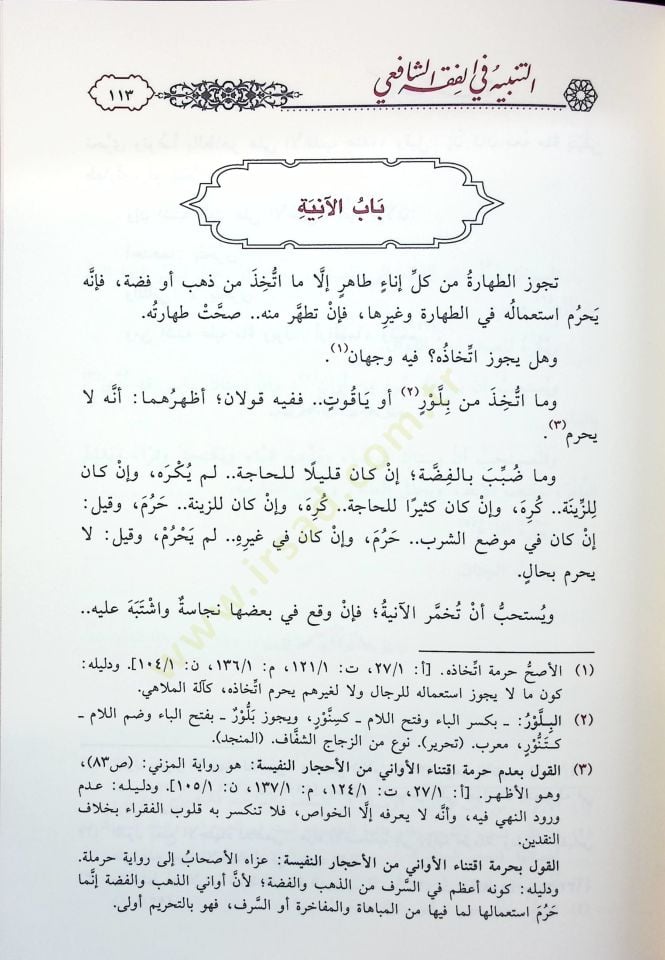 التنبيه في الفقه الشافعي
١١٣
بَابُ الآنِيَةِ
تجوز الطهارةُ من كلِّ إناءٍ طاهرٍ إلَّا ما اتُّخِذَ من ذهب أو فضة، فإنَّه
يَحرُم استعمالُه في الطهارة وغيرِها، فإنْ تطهَّر منه.. صحَّتْ طهارتُه.
وهل يجوز اتِّخاذُه؟ فيه وجهان(١).
وما اتُّخِذَ من بِلَّوْرٍ(٢) أو يَاقُوتٍ.. ففيه قولان؛ أظهرُهما: أنَّه لا
يحرم(٣).
وما ضُبِّبَ بالفِضَّة؛ إنْ كان قليلًا للحاجة.. لم يُكْرَه، وإنْ كان
لِلزِّينَة.. كُرِهَ، وإنْ كان كثيرًا للحاجة.. كُرِهَ، وإنْ كان للزينة.. حَرُمَ، وقيل:
إنْ كان في موضع الشرب.. حَرُمَ، وإنْ كان في غيرِهِ.. لم يَحْرُمْ، وقيل: لا
يحرم بحالٍ.
ويُستحبُّ أنْ تُخمَّر الآنيةُ؛ فإنْ وقع في بعضها نجاسةٌ واشْتَبَهَ عليه..
(١) الأصحُّ حرمة اتِّخاذه. [أ: ٢٧/١، ت: ١٢١/١، م: ١٣٦/١، ن: ١٠٤/١]. ودليله:
كون ما لا يجوز استعماله للرجال ولا لغيرهم يحرم اتِّخاذه، كآلة الملاهي.
(٢) البِلَّوْرُ: ـ بكسر الباء وفتح اللام ـ كسِنَّوْرٍ، ويجوز بَلُّوْرٌ ـ بفتح الباء وضم اللام ـ
كتَنُّورٍ، معرب. (تحرير). نوع من الزجاج الشفَّاف. (المنجد).
(٣) القول بعدم حرمة اقتناء الأواني من الأحجار النفيسة: هو رواية المزني: (ص٨٣)،
وهو الأظهر. [أ: ٢٧/١، ت: ١٢٤/١، م: ١٣٧/١، ن: ١٠٥/١]. ودليله: عدم
ورود النهي فيه، وأنَّه لا يعرفه إلَّا الخواص، فلا تنكسر به قلوب الفقراء بخلاف
النقدين.
القول بحرمة اقتناء الأواني من الأحجار النفيسة: عزاه الأصحابُ إلى رواية حرملة.
ودليله: كونه أعظم في السَّرف من الذهب والفضة؛ لأنَّ أواني الذهب والفضة إنَّما
حَرُمَ استعمالها لما فيها من المباهاة والمفاخرة أو السَّرف، فهو بالتحريم أولى.
www.irsad.com.tr